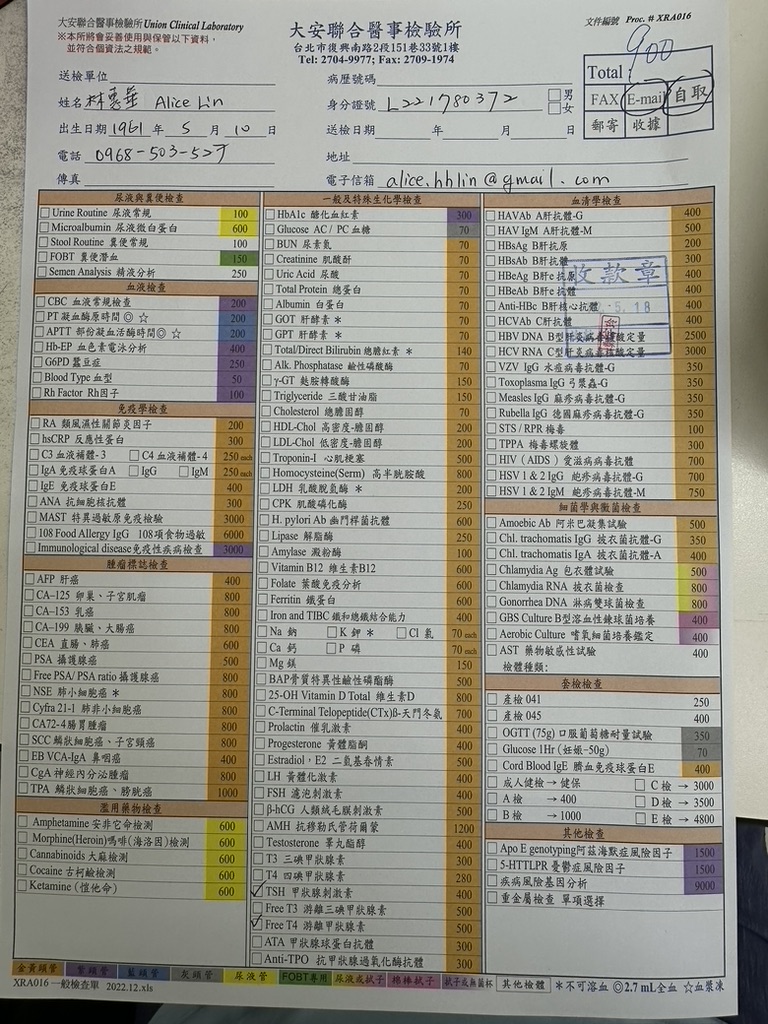 大安聯合醫事檢驗所Union Clinical Laboratory
※本所將妥善使用與保管以下資料，
並符合個資法之規範。
大安聯合醫事檢驗所
台北市復興南路2段151巷33號1樓
Tel: 2704-9977; Fax: 2709-1974
文件編號 Proc. # XRA016
Total: 900
FAX E-mail 自取
郵寄 收據
送檢單位
病歷號碼
姓名 林惠華 Alice Lin
身分證號 L221780372 □男
□女
出生日期 1961 年 5 月 10 日
送檢日期 年 月 日
電話 0968-503-527
地址
傳真
電子信箱 alice.hhlin@gmail.com
尿液與糞便檢查
□Urine Routine 尿液常規 100
□Microalbumin 尿液微白蛋白 600
□Stool Routine 糞便常規 100
□FOBT 糞便潛血 150
□Semen Analysis 精液分析 250
血液檢查
□CBC 血液常規檢查 200
□PT 凝血酶原時間◎☆ 200
□APTT 部份凝血活酶時間◎☆ 200
□Hb-EP 血色素電泳分析 400
□G6PD 蠶豆症 250
□Blood Type 血型 50
□Rh Factor Rh因子 100
免疫學檢查
□RA 類風濕性關節炎因子 200
□hsCRP 反應性蛋白 300
□C3 血液補體-3 □C4 血液補體-4 250 each
□IgA 免疫球蛋白A □IgG □IgM 250 each
□IgE 免疫球蛋白E 400
□ANA 抗細胞核抗體 300
□MAST 特異過敏原免疫檢驗 3000
□108 Food Allergy IgG 108項食物過敏 6000
□Immunological disease免疫性疾病檢查 3000
腫瘤標誌檢查
□AFP 肝癌 400
□CA-125 卵巢、子宮肌瘤 800
□CA-153 乳癌 800
□CA-199 胰臟、大腸癌 800
□CEA 直腸、肺癌 600
□PSA 攝護腺癌 500
□Free PSA/ PSA ratio 攝護腺癌 800
□NSE 肺小細胞癌＊ 800
□Cyfra 21-1 肺非小細胞癌 800
□CA72-4腸胃腫瘤 800
□SCC 鱗狀細胞癌、子宮頸癌 800
□EB VCA-IgA 鼻咽癌 400
□CgA 神經內分泌腫瘤 800
□TPA 鱗狀細胞癌、膀胱癌 1000
濫用藥物檢查
□Amphetamine 安非它命檢測 600
□Morphine(Heroin)嗎啡(海洛因)檢測 600
□Cannabinoids 大麻檢測 600
□Cocaine 古柯鹼檢測 600
□Ketamine (愷他命) 600
一般及特殊生化學檢查
□HbA1c 醣化血紅素 300
□Glucose AC / PC 血糖 70
□BUN 尿素氮 70
□Creatinine 肌酸酐 70
□Uric Acid 尿酸 70
□Total Protein 總蛋白 70
□Albumin 白蛋白 70
□GOT 肝酵素＊ 70
□GPT 肝酵素＊ 70
□Total/Direct Bilirubin 總膽紅素＊ 140
□Alk. Phosphatase 鹼性磷酸酶 70
□γ-GT 麩胺轉酸酶 150
□Triglyceride 三酸甘油脂 150
□Cholesterol 總膽固醇 70
□HDL-Chol 高密度-膽固醇 200
□LDL-Chol 低密度-膽固醇 200
□Troponin-I 心肌梗塞 500
□Homocysteine(Serm) 高半胱胺酸 800
□LDH 乳酸脫氫酶＊ 200
□CPK 肌酸磷化酶 200
□H. pylori Ab 幽門桿菌抗體 600
□Lipase 解脂酶 250
□Amylase 澱粉酶 100
□Vitamin B12 維生素B12 600
□Folate 葉酸免疫分析 600
□Ferritin 鐵蛋白 600
□Iron and TIBC 鐵和總鐵結合能力 400
□Na 鈉 □K 鉀＊ □Cl 氯 70 each
□Ca 鈣 □P 磷 70 each
□Mg 鎂 150
□BAP骨質特異性鹼性磷酯酶 500
□25-OH Vitamin D Total 維生素D 800
□C-Terminal Telopeptide(CTx)ß-天門冬氨 700
□Prolactin 催乳激素 400
□Progesterone 黃體脂酮 400
□Estradiol，E2 二氫基春情素 500
□LH 黃體化激素 400
□FSH 濾泡刺激素 400
□β-hCG 人類絨毛膜刺激素 500
□AMH 抗穆勒氏管荷爾蒙 1200
□Testosterone 睪丸酯醇 400
□T3 三碘甲狀腺素 300
□T4 四碘甲狀腺素 280
☑TSH 甲狀腺刺激素 400
□Free T3 游離三碘甲狀腺素 500
☑Free T4 游離甲狀腺素 500
□ATA 甲狀腺球蛋白抗體 300
□Anti-TPO 抗甲狀腺過氧化酶抗體 300
血清學檢查
□HAVAb A肝抗體-G 400
□HAV IgM A肝抗體-M 500
□HBsAg B肝抗原 200
□HBsAb B肝抗體 300
□HBeAg B肝e抗原 400
□HBeAb B肝e抗體 400
□Anti-HBc B肝核心抗體 400
□HCVAb C肝抗體 400
□HBV DNA B型肝炎病毒核酸定量 2500
□HCV RNA C型肝炎病毒核酸定量 3000
收款章
5.18
□VZV IgG 水痘病毒抗體-G 350
□Toxoplasma IgG 弓漿蟲-G 350
□Measles IgG 麻疹病毒抗體-G 350
□Rubella IgG 德國麻疹病毒抗體-G 350
□STS / RPR 梅毒 100
□TPPA 梅毒螺旋體 300
□HIV (AIDS) 愛滋病病毒抗體 700
□HSV 1 & 2 IgG 皰疹病毒抗體-G 700
□HSV 1 & 2 IgM 皰疹病毒抗體-M 750
細菌學與黴菌檢查
□Amoebic Ab 阿米巴凝集試驗 500
□Chl. trachomatis IgG 披衣菌抗體-G 350
□Chl. trachomatis IgA 披衣菌抗體-A 400
□Chlamydia Ag 包衣體試驗 500
□Chlamydia RNA 披衣菌檢查 800
□Gonorrhea DNA 淋病雙球菌檢查 800
□GBS Culture B型溶血性鍊球菌培養 400
□Aerobic Culture 嗜氧細菌培養鑑定 400
□AST 藥物敏感性試驗 400
檢體種類:
套檢檢查
□產檢 041 250
□產檢 045 400
□OGTT (75g) 口服葡萄糖耐量試驗 350
□Glucose 1Hr (妊娠-50g) 70
□Cord Blood IgE 臍血免疫球蛋白E 400
□成人健檢→健保 □C檢→3000
□A檢 →400 □D檢→3500
□B檢 →1000 □E檢→4800
其他檢查
□Apo E genotyping阿茲海默症風險因子 1500
□5-HTTLPR 憂鬱症風險因子 1500
□疾病風險基因分析 9000
□重金屬檢查 單項選擇
金黃頭管 紫頭管 藍頭管 灰頭管 尿液管 FOBT專用 尿液或拭子 棉棒拭子 拭子或無菌杯 其他檢體 ＊不可溶血 ◎2.7 mL全血 ☆血漿凍
XRA016 一般檢查單 2022.12.xls